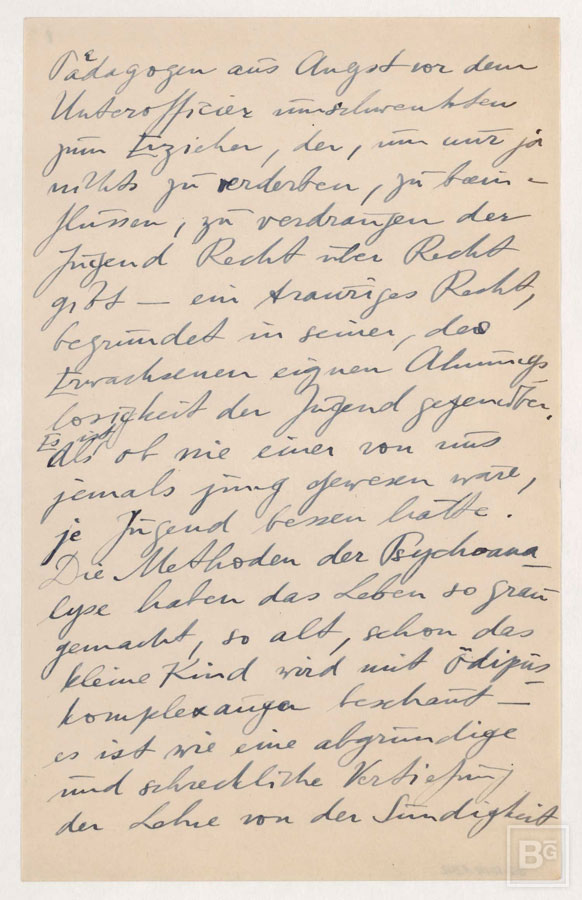 Pädagogen aus Angst vor dem
Unterofficier umschwenkten
zum Erzieher, der, um nur ja
nichts zu verderben, zu beein-
flussen, zu verdrängen der
Jugend Recht über Recht
gibt — ein trauriges Recht,
begründet in seiner, des
Erwachsenen eignen Ahnungs
losigkeit der Jugend gegenüber.
Es ist
Als ob nie einer von uns
jemals jung gewesen wäre,
je Jugend bessen hätte.
Die Methoden der Psychoana-
lyse haben das Leben so grau
gemacht, so alt, schon das
kleine Kind wird mit Ödipus-
komplexaugen beschaut —
es ist wie eine abgründige
und schreckliche Vertiefung
der Lehre von der Sündigkeit
BG